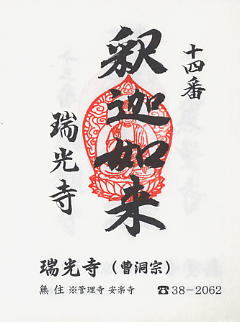 十四番
釈迦如来
瑞光寺
瑞光寺（曹洞宗）
無住 ※管理寺 安楽寺 ☎38-2062